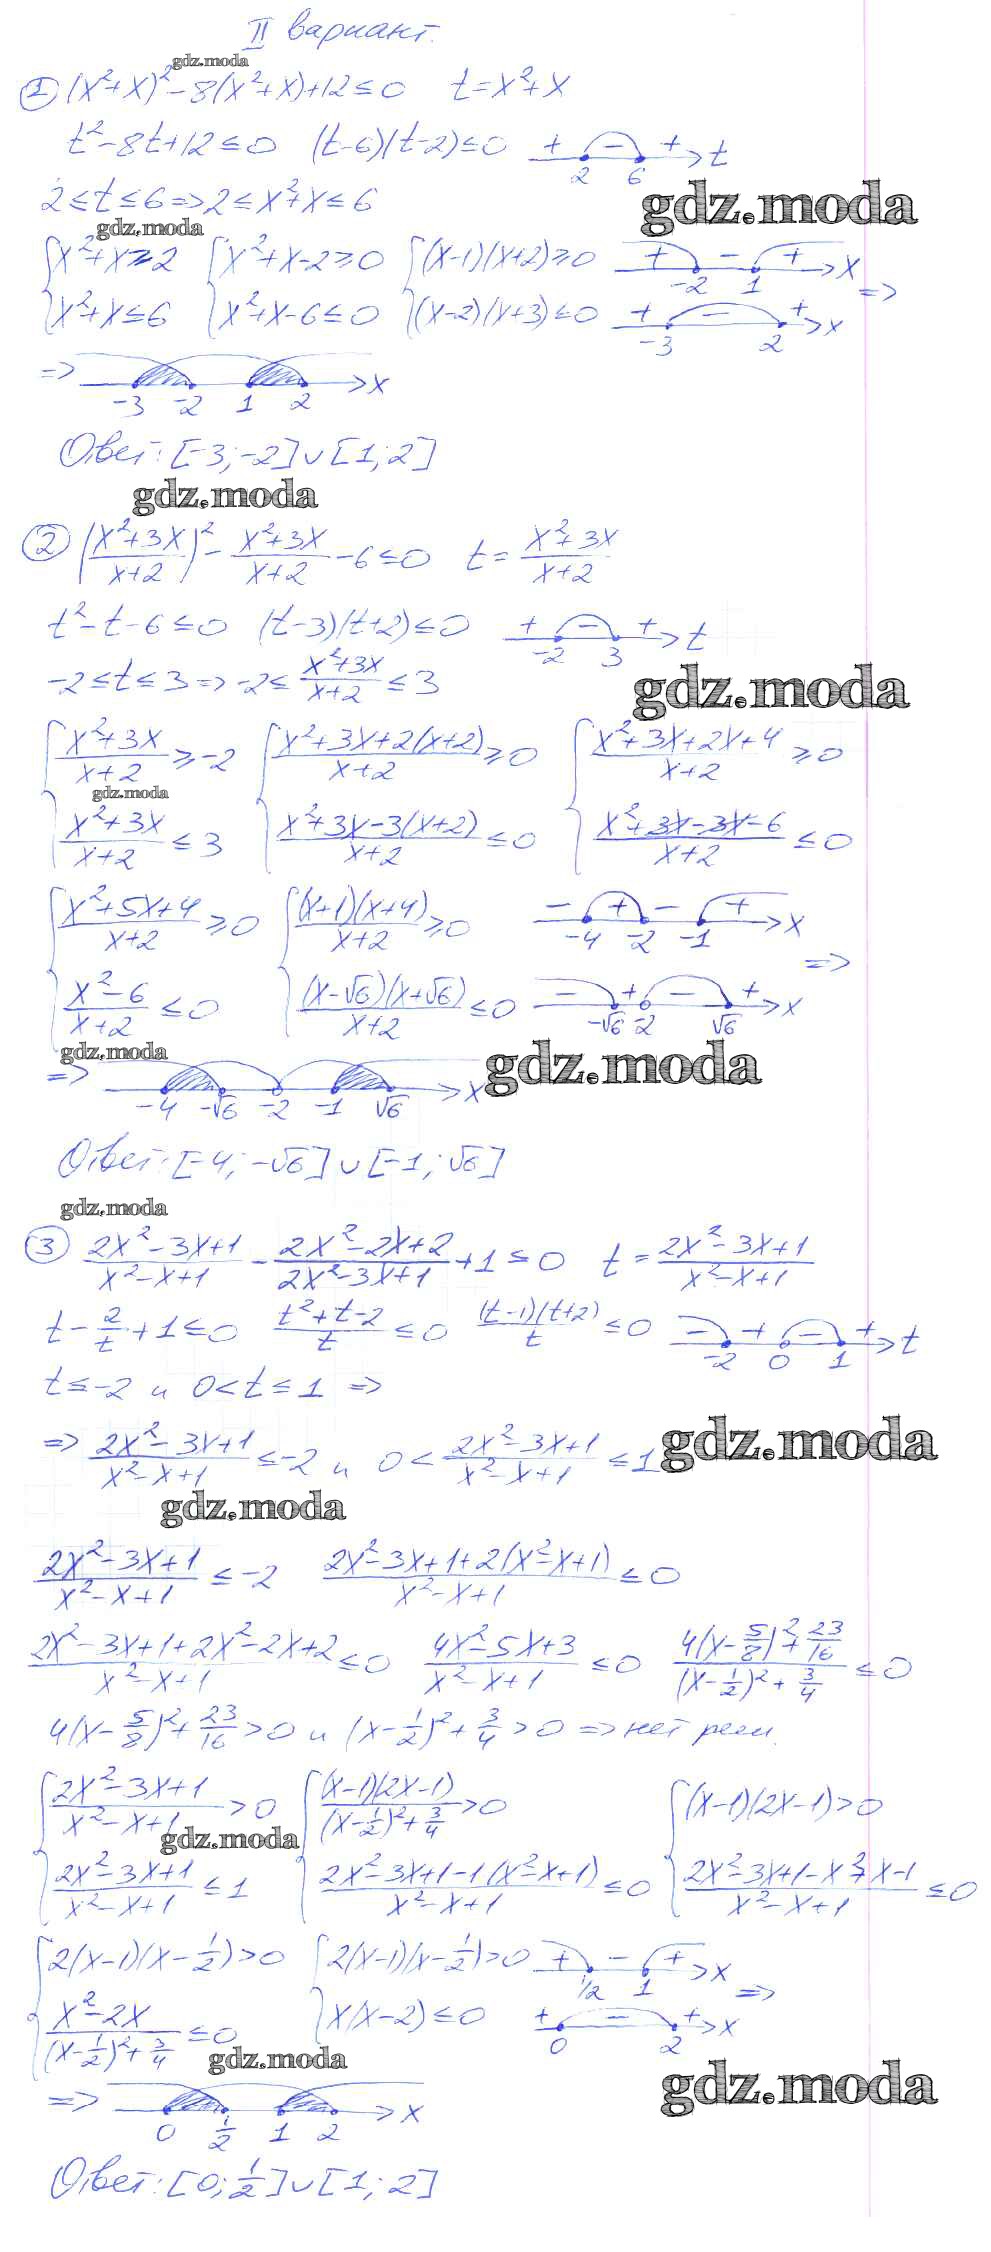 II вариант.
gdz.moda
① (x²+x)² - 8(x²+x)+12 ≤ 0   t = x²+x
t² - 8t + 12 ≤ 0   (t-6)(t-2) ≤ 0   + - + t
2 6
2 ≤ t ≤ 6 => 2 ≤ x²+x ≤ 6
gdz.moda
gdz.moda
{ x²+x ≥ 2   { x²+x-2 ≥ 0   { (x-1)(x+2) ≥ 0   + - + x
-2 1 =>
{ x²+x ≤ 6   { x²+x-6 ≤ 0   { (x-2)(x+3) ≤ 0   + - + x
-3 2
=> x
-3 -2 1 2
Ответ: [-3; -2] ∪ [1; 2]
gdz.moda
② ((x²+3x)/(x+2))² - (x²+3x)/(x+2) - 6 ≤ 0   t = (x²+3x)/(x+2)
t² - t - 6 ≤ 0   (t-3)(t+2) ≤ 0   + - + t
-2 3
-2 ≤ t ≤ 3 => -2 ≤ (x²+3x)/(x+2) ≤ 3
gdz.moda
{ (x²+3x)/(x+2) ≥ -2   { (x²+3x+2(x+2))/(x+2) ≥ 0   { (x²+3x+2x+4)/(x+2) ≥ 0
gdz.moda
{ (x²+3x)/(x+2) ≤ 3   { (x²+3x-3(x+2))/(x+2) ≤ 0   { (x²+3x-3x-6)/(x+2) ≤ 0
{ (x²+5x+4)/(x+2) ≥ 0   { (x+1)(x+4)/(x+2) ≥ 0   - + - + x
-4 -2 -1 =>
{ (x²-6)/(x+2) ≤ 0   { (x-√6)(x+√6)/(x+2) ≤ 0   - + - + x
-√6 -2 √6
gdz.moda
gdz.moda
=> x
-4 -√6 -2 -1 √6
Ответ: [-4; -√6] ∪ [-1; √6]
gdz.moda
③ (2x²-3x+1)/(x²-x+1) - (2x²-2x+2)/(2x²-3x+1) + 1 ≤ 0   t = (2x²-3x+1)/(x²-x+1)
t - 2/t + 1 ≤ 0   (t²+t-2)/t ≤ 0   (t-1)(t+2)/t ≤ 0   - + - + t
-2 0 1
t ≤ -2 и 0 < t ≤ 1 =>
=> (2x²-3x+1)/(x²-x+1) ≤ -2 и 0 < (2x²-3x+1)/(x²-x+1) ≤ 1
gdz.moda
gdz.moda
(2x²-3x+1)/(x²-x+1) ≤ -2   (2x²-3x+1+2(x²-x+1))/(x²-x+1) ≤ 0
(2x²-3x+1+2x²-2x+2)/(x²-x+1) ≤ 0   (4x²-5x+3)/(x²-x+1) ≤ 0   (4(x-5/8)²+23/16)/((x-1/2)²+3/4) ≤ 0
4(x-5/8)²+23/16 > 0 и (x-1/2)²+3/4 > 0 => нет реш.
{ (2x²-3x+1)/(x²-x+1) > 0   { (x-1)(2x-1)/((x-1/2)²+3/4) > 0   { (x-1)(2x-1) > 0
gdz.moda
{ (2x²-3x+1)/(x²-x+1) ≤ 1   { (2x²-3x+1-1(x²-x+1))/(x²-x+1) ≤ 0   { (2x²-3x+1-x²+x-1)/(x²-x+1) ≤ 0
{ 2(x-1)(x-1/2) > 0   { 2(x-1)(x-1/2) > 0   + - + x
1/2 1 =>
{ (x²-2x)/((x-1/2)²+3/4) ≤ 0   { x(x-2) ≤ 0   + - + x
0 2
gdz.moda
gdz.moda
=> x
0 1/2 1 2
Ответ: [0; 1/2] ∪ [1; 2]